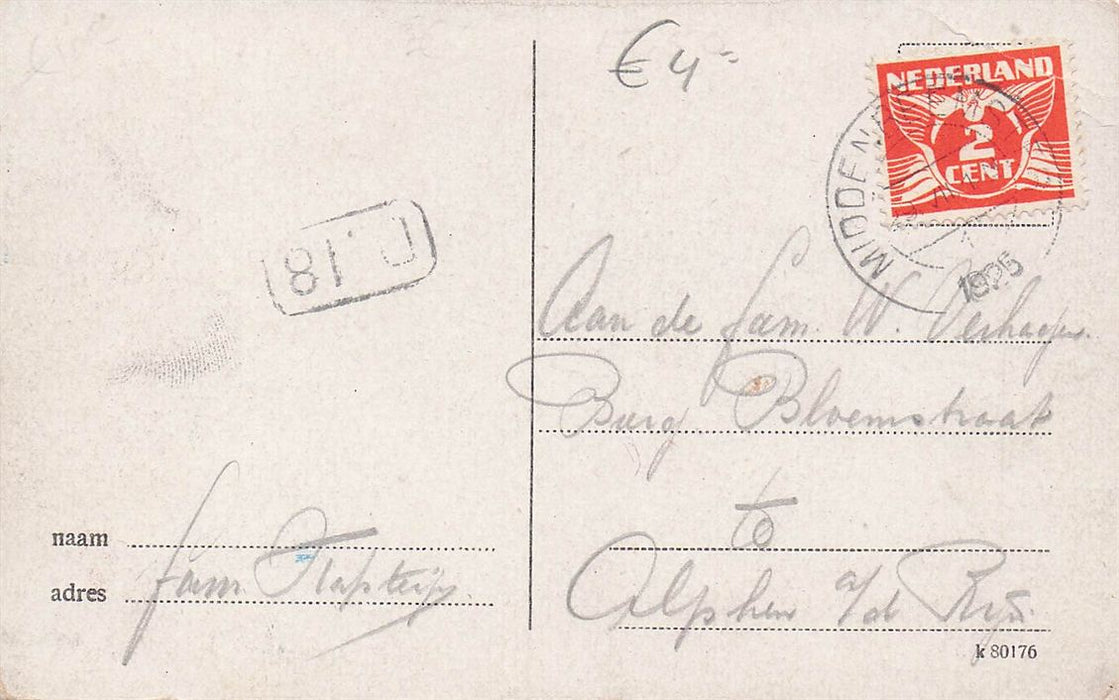 € 4-
NEDERLAND
2
CENT
1925
D. 18
Aan de fam. W.
Burg Bloemstraat
te
Alphen a/d Rijn
naam
adres
fam
k 80176